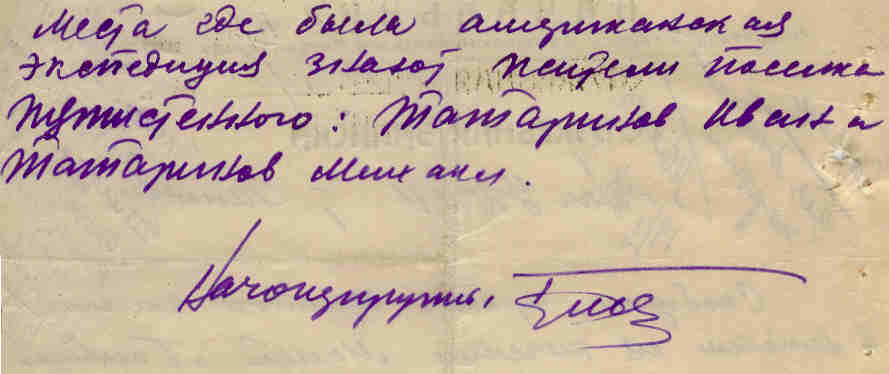 Места где была американская
экспедиция знают жители поселка
Татаринов Иван и
Татаринов Михаил.